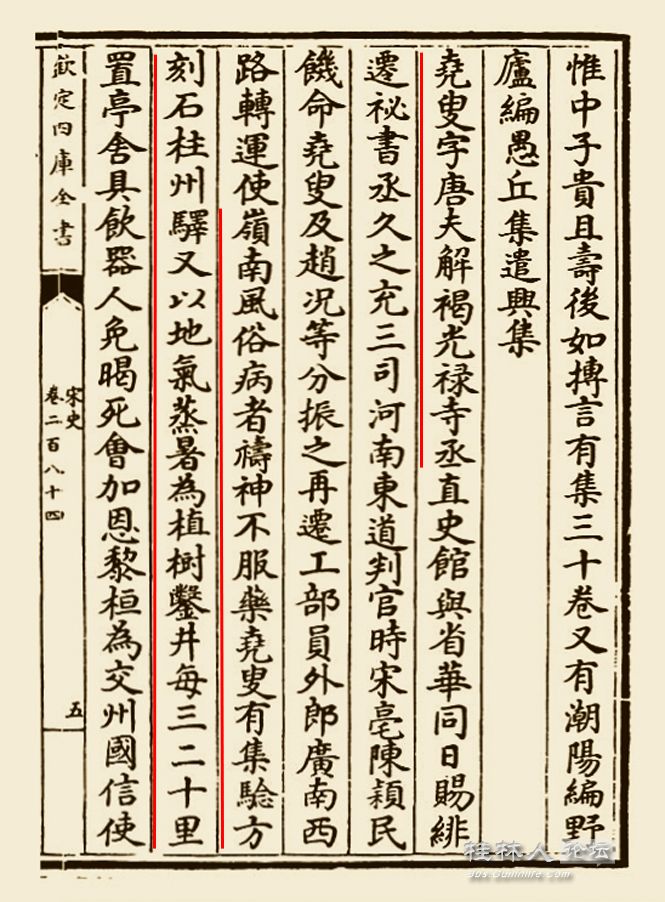 惟中子貴且壽後如摶言有集三十卷又有潮陽編野
廬編愚丘集遣興集
堯叟字唐夫解褐光祿寺丞直史館與省華同日賜緋
遷祕書丞久之充三司河南東道判官時宋亳陳潁民
饑命堯叟及趙況等分振之再遷工部員外郎廣南西
路轉運使嶺南風俗病者禱神不服藥堯叟有集驗方
刻石柱州驛又以地氣蒸暑為植樹鑿井每三二十里
置亭舍具飲器人免暍死會加恩黎桓為交州國信使
欽定四庫全書
宋史
卷二百八十四
五
桂林人论坛
bbs.Guilinlife.com